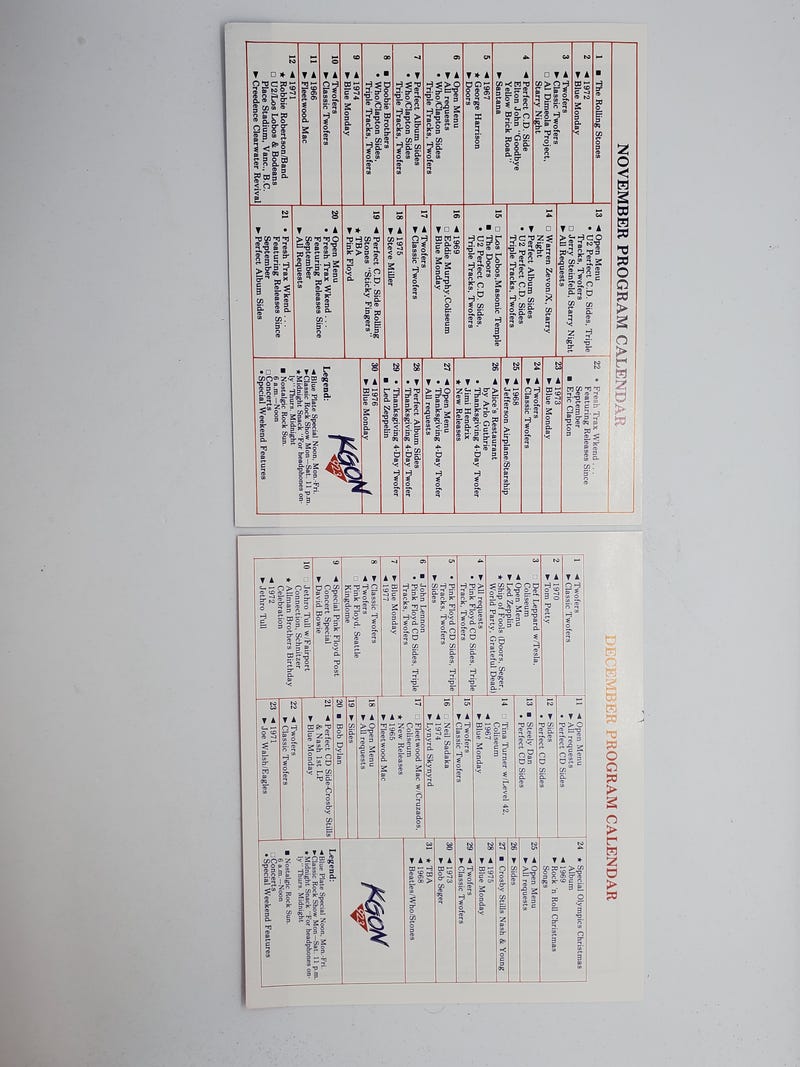 NOVEMBER PROGRAM CALENDAR
1 ■ The Rolling Stones
2 ◄ 1972
► Blue Monday
3 ◄ Twofers
► Classic Twofers
□ Al Dimeola Project,
Starry Night
4 ◄ Perfect C.D. Side
Elton John "Goodbye
Yellow Brick Road"
► Santana
5 ◄ 1967
★ George Harrison
► Doors
6 ◄ Open Menu
► All requests
• Who/Clapton Sides
Triple Tracks, Twofers
7 ► Perfect Album Sides
• Who/Clapton Sides
Triple Tracks, Twofers
8 ■ Doobie Brothers
• Who/Clapton Sides,
Triple Tracks, Twofers
9 ◄ 1974
► Blue Monday
10 ◄ Twofers
► Classic Twofers
11 ◄ 1966
► Fleetwood Mac
12 ◄ 1971
★ Robbie Robertson/Band
□ U2/Los Lobos & Bodeans
Place Stadium, Vanc., B.C.
► Creedence Clearwater Revival
13 ◄ Open Menu
• U2 Perfect C.D. Sides, Triple
Tracks, Twofers
□ Jerry Steinfeld, Starry Night
► All Requests
14 □ Warren Zevon/X, Starry
Night
► Perfect Album Sides
• U2 Perfect C.D. Sides
Triple Tracks, Twofers
15 □ Los Lobos, Masonic Temple
■ The Doors
• U2 Perfect C.D. Sides,
Triple Tracks, Twofers
16 ◄ 1969
□ Eddie Murphy, Coliseum
► Blue Monday
17 ◄ Twofers
► Classic Twofers
18 ◄ 1975
► Steve Miller
19 ◄ Perfect C.D. Side Rolling
Stones "Sticky Fingers"
★ TBA
► Pink Floyd
20 ◄ Open Menu
• Fresh Trax Wkend . . .
Featuring Releases Since
September
► All Requests
21 • Fresh Trax Wkend . . .
Featuring Releases Since
September
► Perfect Album Sides
22 • Fresh Trax Wkend . . .
Featuring Releases Since
September
■ Eric Clapton
23 ◄ 1973
► Blue Monday
24 ◄ Twofers
► Classic Twofers
25 ◄ 1968
► Jefferson Airplane/Starship
26 ◄ Alice's Restaurant
by Arlo Guthrie
• Thanksgiving 4-Day Twofer
► Jimi Hendrix
★ New Releases
27 ◄ Open Menu
• Thanksgiving 4-Day Twofer
► All requests
28 ► Perfect Album Sides
• Thanksgiving 4-Day Twofer
29 • Thanksgiving 4-Day Twofer
■ Led Zeppelin
30 ◄ 1976
► Blue Monday
Legend:
◄ Blue Plate Special Noon, Mon.-Fri.
► Classic Rock Show Mon.–Sat. 11 p.m.
★ Midnight Snack "For headphones on-
ly" Thurs. Midnight
■ Nostalgic Rock Sun.
6 a.m.–Noon
□ Concerts
• Special Weekend Features
KGON
92.3
DECEMBER PROGRAM CALENDAR
1 ◄ Twofers
► Classic Twofers
2 ◄ 1970
► Tom Petty
3 □ Def Leppard w/Tesla,
Coliseum
◄ Open Menu
► Led Zepplin
★ Ship of Fools (Doors, Seger,
World Party, Grateful Dead)
4 ► All requests
• Pink Floyd CD Sides, Triple
Track, Twofers
5 • Pink Floyd CD Sides, Triple
Tracks, Twofers
► Sides
6 ■ John Lennon
• Pink Floyd CD Sides, Triple
Tracks, Twofers
7 ► Blue Monday
◄ 1977
8 ► Classic Twofers
◄ Twofers
□ Pink Floyd, Seattle
Kingdome
9 ◄ Special Pink Floyd Post
Concert Special
► David Bowie
10 □ Jethro Tull w/Fairport
Connection, Schnitzer
★ Allman Brothers Birthday
Celebration
◄ 1972
► Jethro Tull
11 ◄ Open Menu
► All requests
• Perfect CD Sides
12 ► Sides
• Perfect CD Sides
13 ■ Steely Dan
• Perfect CD Sides
14 □ Tina Turner w/Level 42,
Coliseum
◄ 1967
► Blue Monday
15 ◄ Twofers
► Classic Twofers
16 □ Neil Sadaka
◄ 1974
► Lynyrd Skynyrd
17 □ Fleetwood Mac w/Cruzados,
Coliseum
★ New Releases
◄ 1965
► Fleetwood Mac
18 ◄ Open Menu
► All requests
19 ► Sides
20 ■ Bob Dylan
21 ◄ Perfect CD Side-Crosby Stills
& Nash 1st LP
► Blue Monday
22 ◄ Twofers
► Classic Twofers
23 ◄ 1971
► Joe Walsh/Eagles
24 ★ Special Olympics Christmas
Album
◄ 1969
► Rock 'n Roll Christmas
Songs
25 ◄ Open Menu
► All requests
26 ► Sides
27 ■ Crosby Stills Nash & Young
28 ◄ 1975
► Blue Monday
29 ◄ Twofers
► Classic Twofers
30 ◄ 1973
► Bob Seger
31 ★ TBA
◄ 1968
► Beatles/Who/Stones
Legend:
◄ Blue Plate Special Noon, Mon.-Fri.
► Classic Rock Show Mon.–Sat. 11 p.m.
★ Midnight Snack "For headphones on-
ly" Thurs. Midnight
■ Nostalgic Rock Sun.
6 a.m.–Noon
□ Concerts
• Special Weekend Features
KGON
92.3